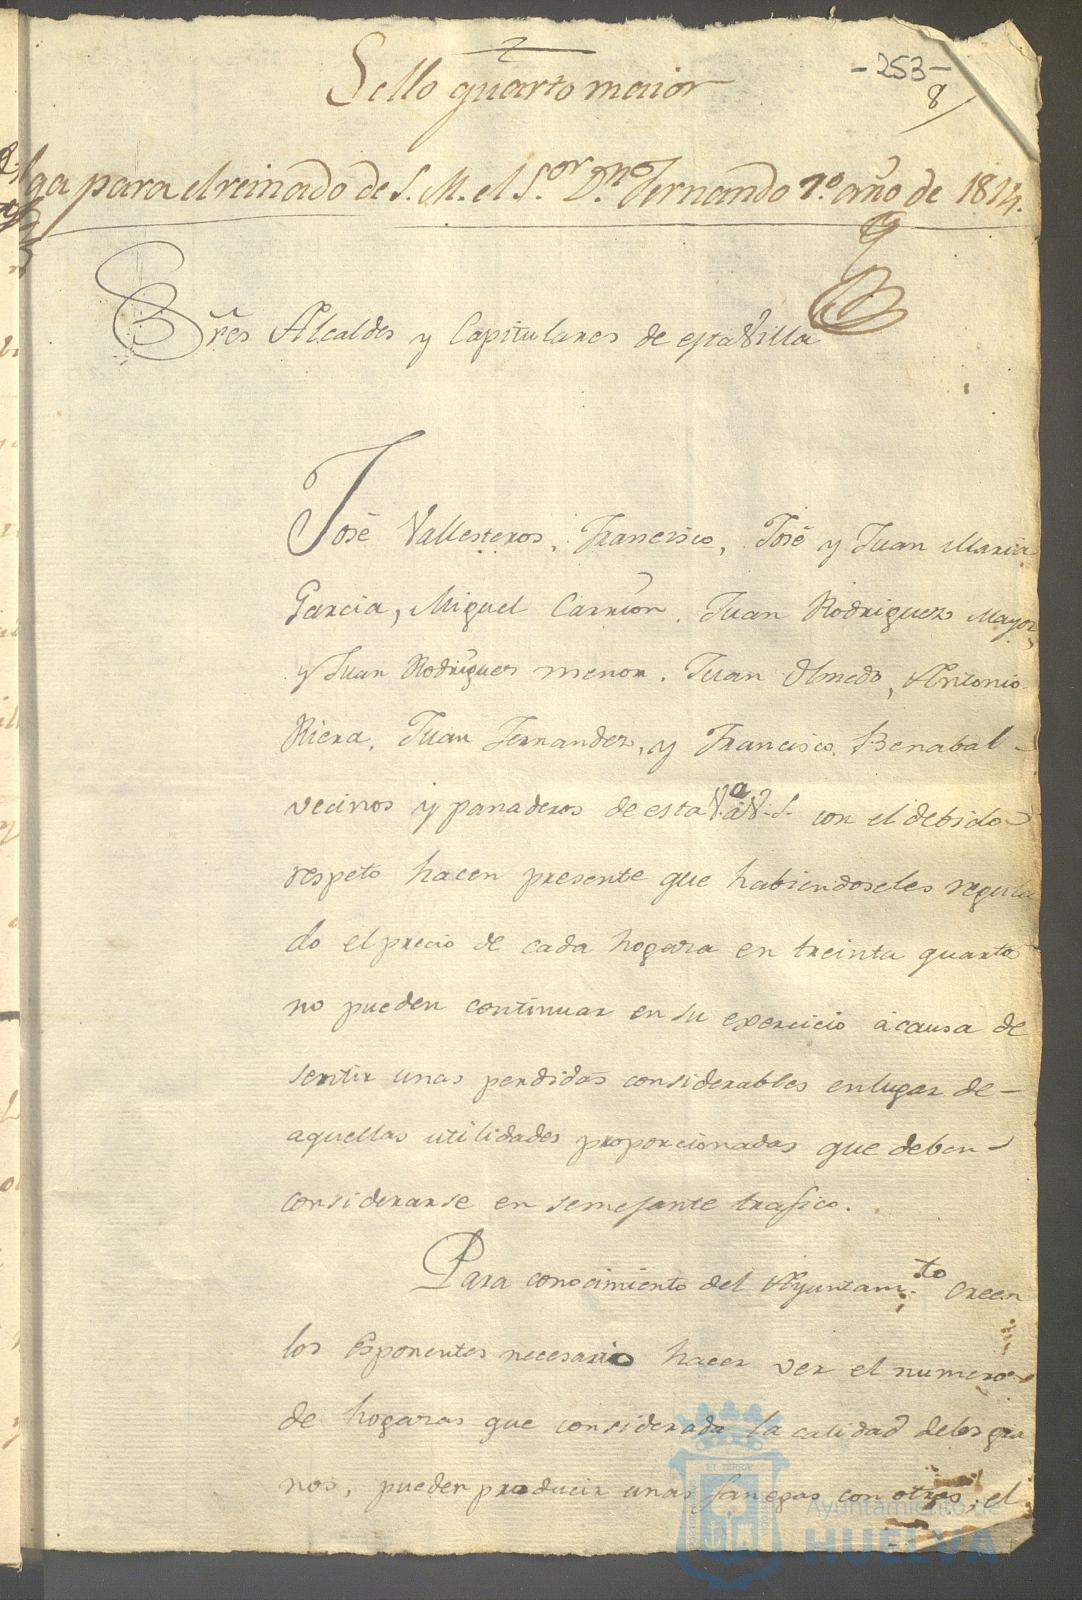 -253-
8
Sello quarto maior
lga para el reinado de S. M. el S.or D.no Fernando 7.o año de 1814.
Sres Alcaldes y Capitulares de esta Villa
José Vallesteros, Francisco, José y Juan Maria
Garcia, Miguel Carrion, Juan Rodriguez Mayor
y Juan Rodriguez menor, Juan Olmedo, Antonio
Riera, Juan Fernandez, y Francisco Benabal
vecinos y panaderos de esta V.a a V.S. con el debido
respeto hacen presente que habiendoseles regula
do el precio de cada hogaza en treinta quartos
no pueden continuar en su exercicio á causa de
sentir unas perdidas considerables en lugar de
aquellas utilidades proporcionadas que deben
considerarse en semejante trafico.
Para conocimiento del Ayuntam.to creen
los Esponentes necesario hacer ver el numero
de hogazas que considerada la calidad delos gra
nos, pueden producir unas fanegas con otras, el
ET TERRA
Ayuntamiento de
HUELVA